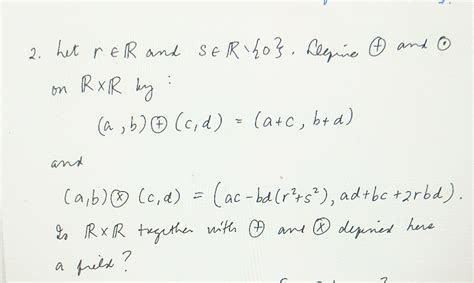 2. Let r ∈ ℝ and s ∈ ℝ \ {0}. Define ⊕ and ⊙
on ℝ×ℝ by :
(a, b) ⊕ (c, d) = (a+c, b+d)
and
(a, b) ⊗ (c, d) = (ac - bd(r²+s²), ad+bc+2rbd).
Is ℝ×ℝ together with ⊕ and ⊗ defined here
a field?